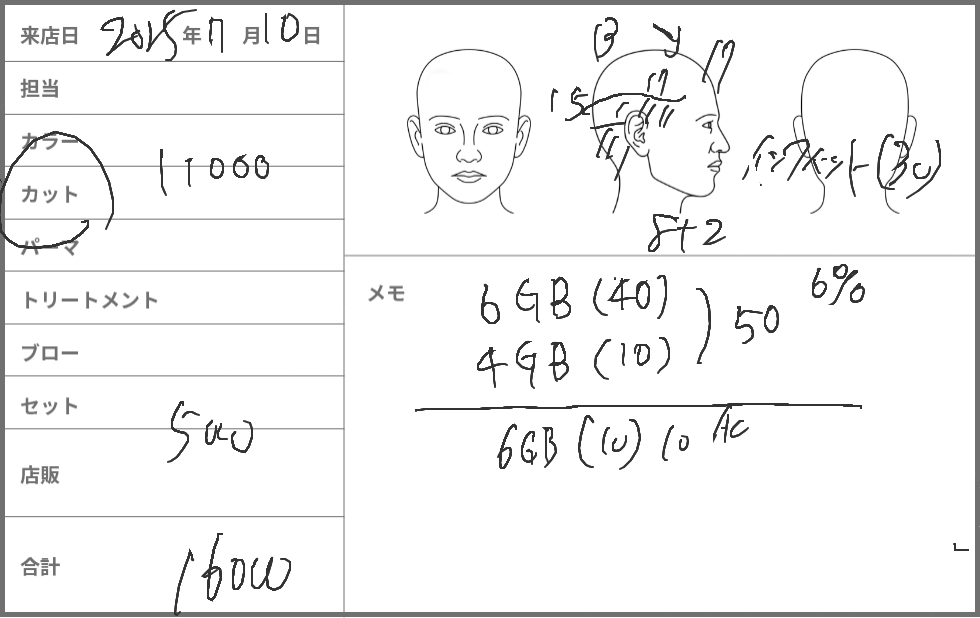 来店日 2025年11月10日
担当
カラー
11000
カット
パーマ
トリートメント
ブロー
セット
5000
店販
合計
16000
B y 17
15 17
インフィニット(30)
8+2
メモ
6GB (40)
4GB (10)
50
6%
6GB (10) 10 AC